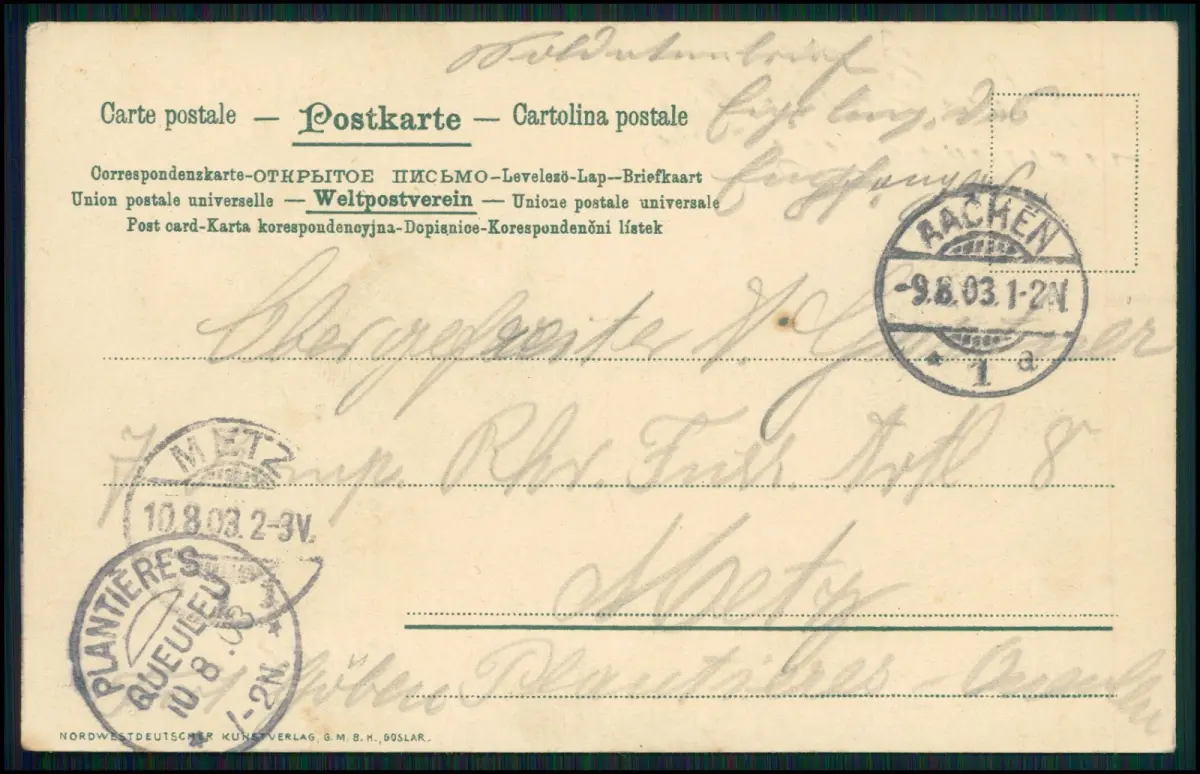 Soldatenbrief
Eig. Ang. des
Empfängers
Carte postale — Postkarte — Cartolina postale
Correspondenzkarte-ОТКРЫТОЕ ПИСЬМО-Levelező-Lap-Briefkaart
Union postale universelle — Weltpostverein — Unione postale universale
Post card-Karta korespondencyjna-Dopisnice-Korespondenční lístek
AACHEN
-9.8.03.1-2N.
* 1 a
Obergefreiter
Komp. Rhr. Fuss Artl 8
Metz
Plantières - Queuleu
METZ
10.8.03.2-3V.
PLANTIÈRES
QUEULEU
10 8.03
1-2N.
NORDWESTDEUTSCHER KUNSTVERLAG, G.M.B.H., GOSLAR.